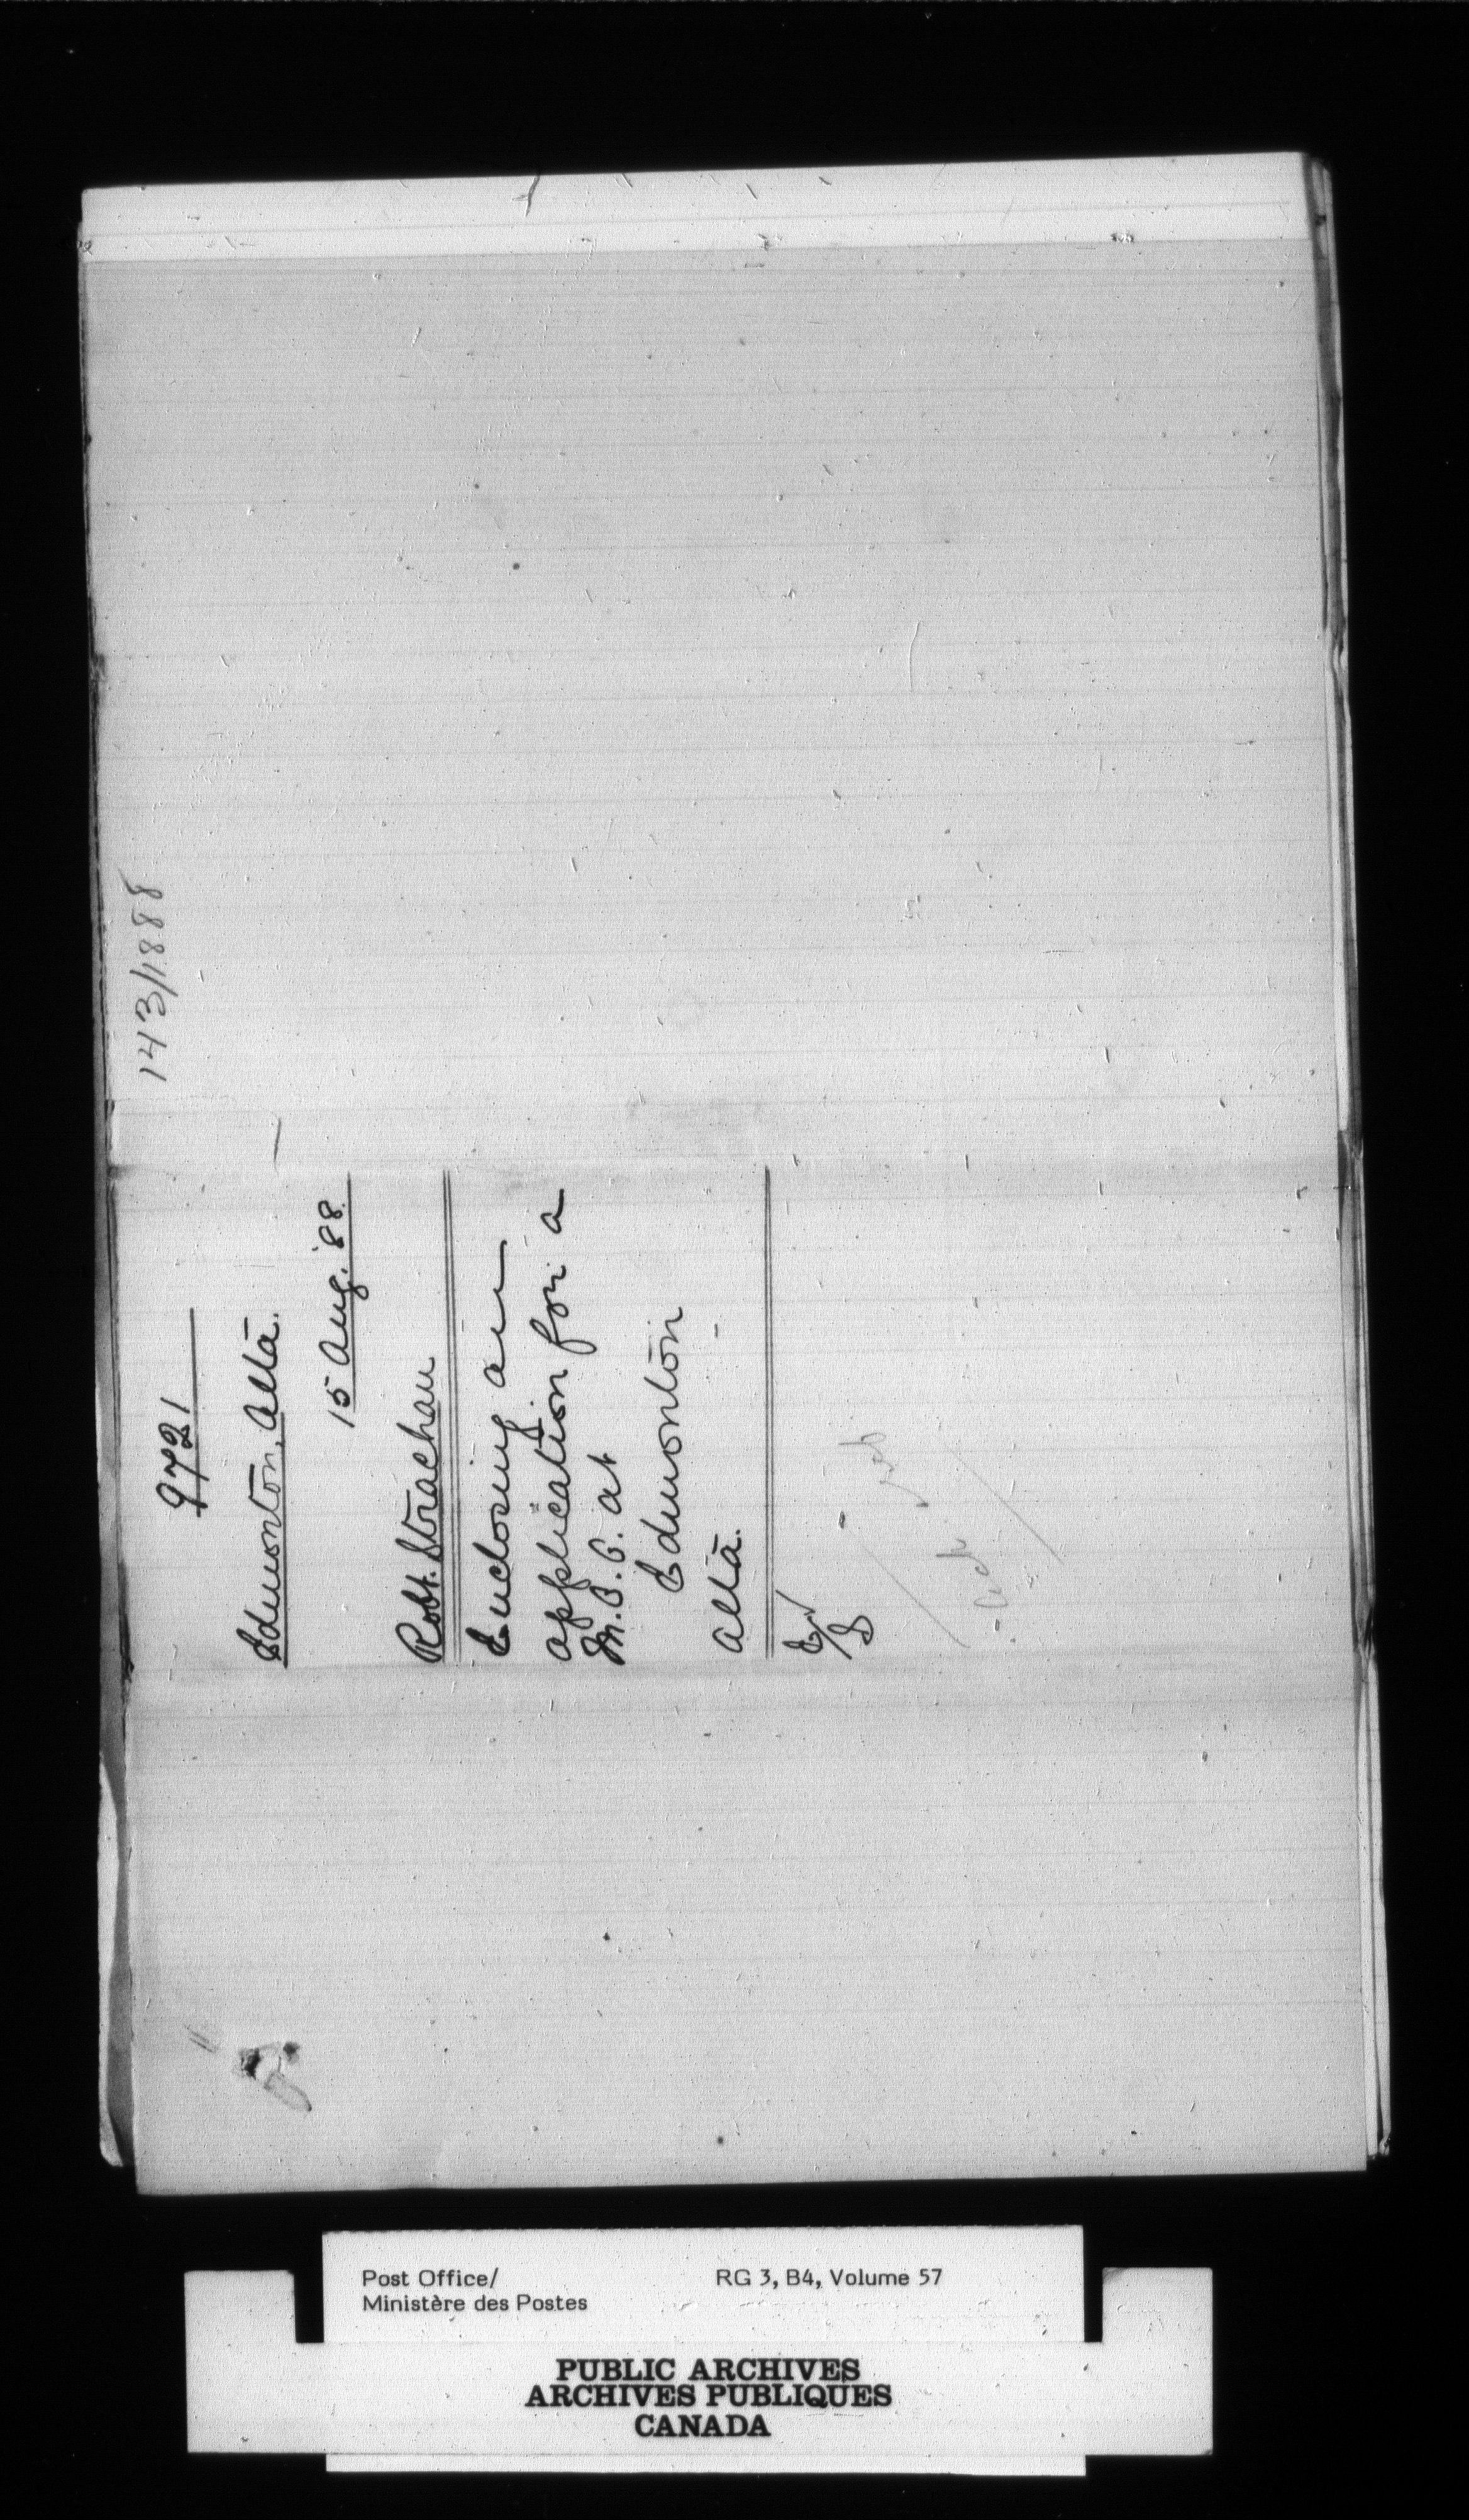 143/1888
9721
Edmonton, Alta.
15 Aug. '88.
Robt. Strachan
Enclosing an
application for a
M.O.O. at
Edmonton
Alta.
Post Office/
Ministère des Postes
RG 3, B4, Volume 57
PUBLIC ARCHIVES
ARCHIVES PUBLIQUES
CANADA